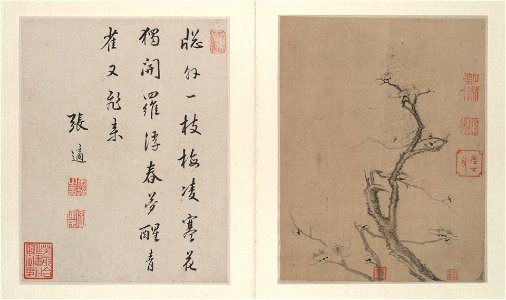 牕外一枝梅凌寒花
獨開羅浮春夢醒青
雀又飛来
張適